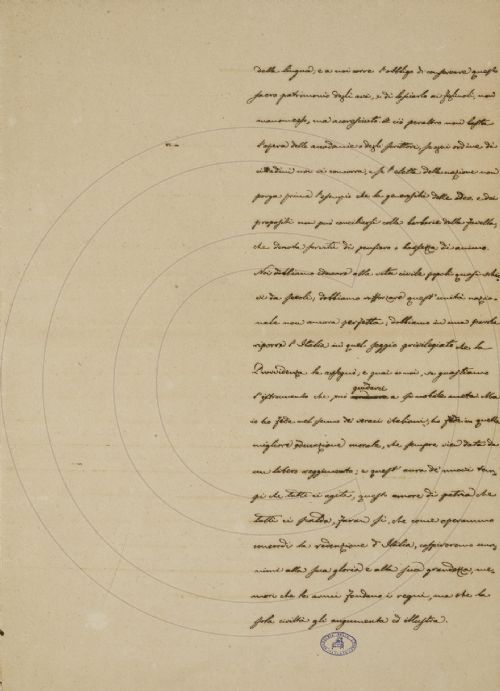 della lingua, e a noi corre l'obbligo di conservare questo
sacro patrimonio degli avi, e di lasciarlo ai figliuoli, non
manomesso, ma accresciuto. A ciò peraltro non basta
l'opera delle accademie o degli scrittori, se ogni ordine di
cittadini non ci concorra, e se l'eletta della nazione non
porga prima l'esempio che la generosità delle idee, e dei
propositi non può conciliarsi colla barbarie della favella,
che denota servitù di pensiero o bassezza di animo.
Noi dobbiamo educare alla vita civile popoli quasi schia
vi da secoli, dobbiamo rafforzare quest'unità nazio-
nale non ancora perfetta, dobbiamo in una parola
riporre l'Italia in quel seggio privilegiato che la
Provvidenza le assegnò, e guai a noi, se guastiamo
guidarci
l'istrumento che può a sì nobile meta. Ma
io ho fede nel senno de' veraci italiani, ho fede in quella
migliore educazione morale, che sempre vien data da
un libero reggimento; e quest'aura di nuovi tem-
pi che tutti ci agita, questo amore di patria che
tutti ci scalda, faran sì, che come operammo
concordi la redenzione d'Italia, cospireremo una-
nimi alla sua gloria e alla sua grandezza, me-
mori che le armi fondano i regni, ma che la
sola civiltà gli augumenta ed illustra.